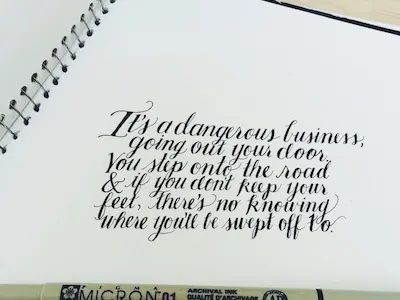 It's a dangerous business,
going out your door.
You step onto the road
& if you don't keep your
feet, there's no knowing
where you'll be swept off to.
MICRON 01
ARCHIVAL INK
QUALITÉ D'ARCHIVAGE